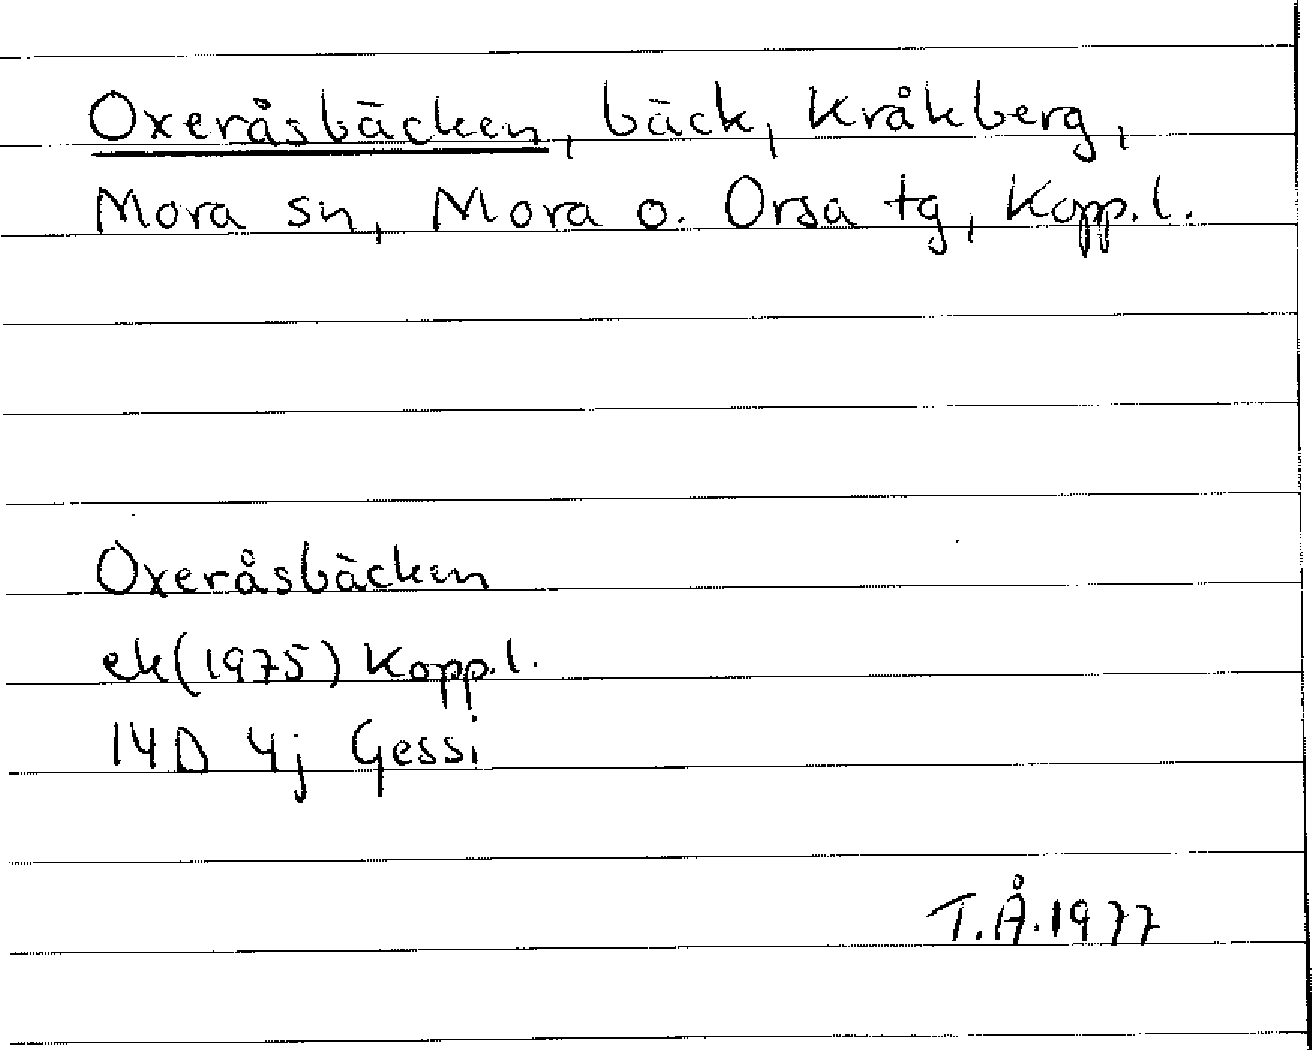 Oxeråsbäcken, bäck, Kråkberg,
Mora sn, Mora o. Orsa tg, Kopp.l.
Oxeråsbäcken
ek(1975) Kopp.l.
14D 4j Gessi
T.Å.1977